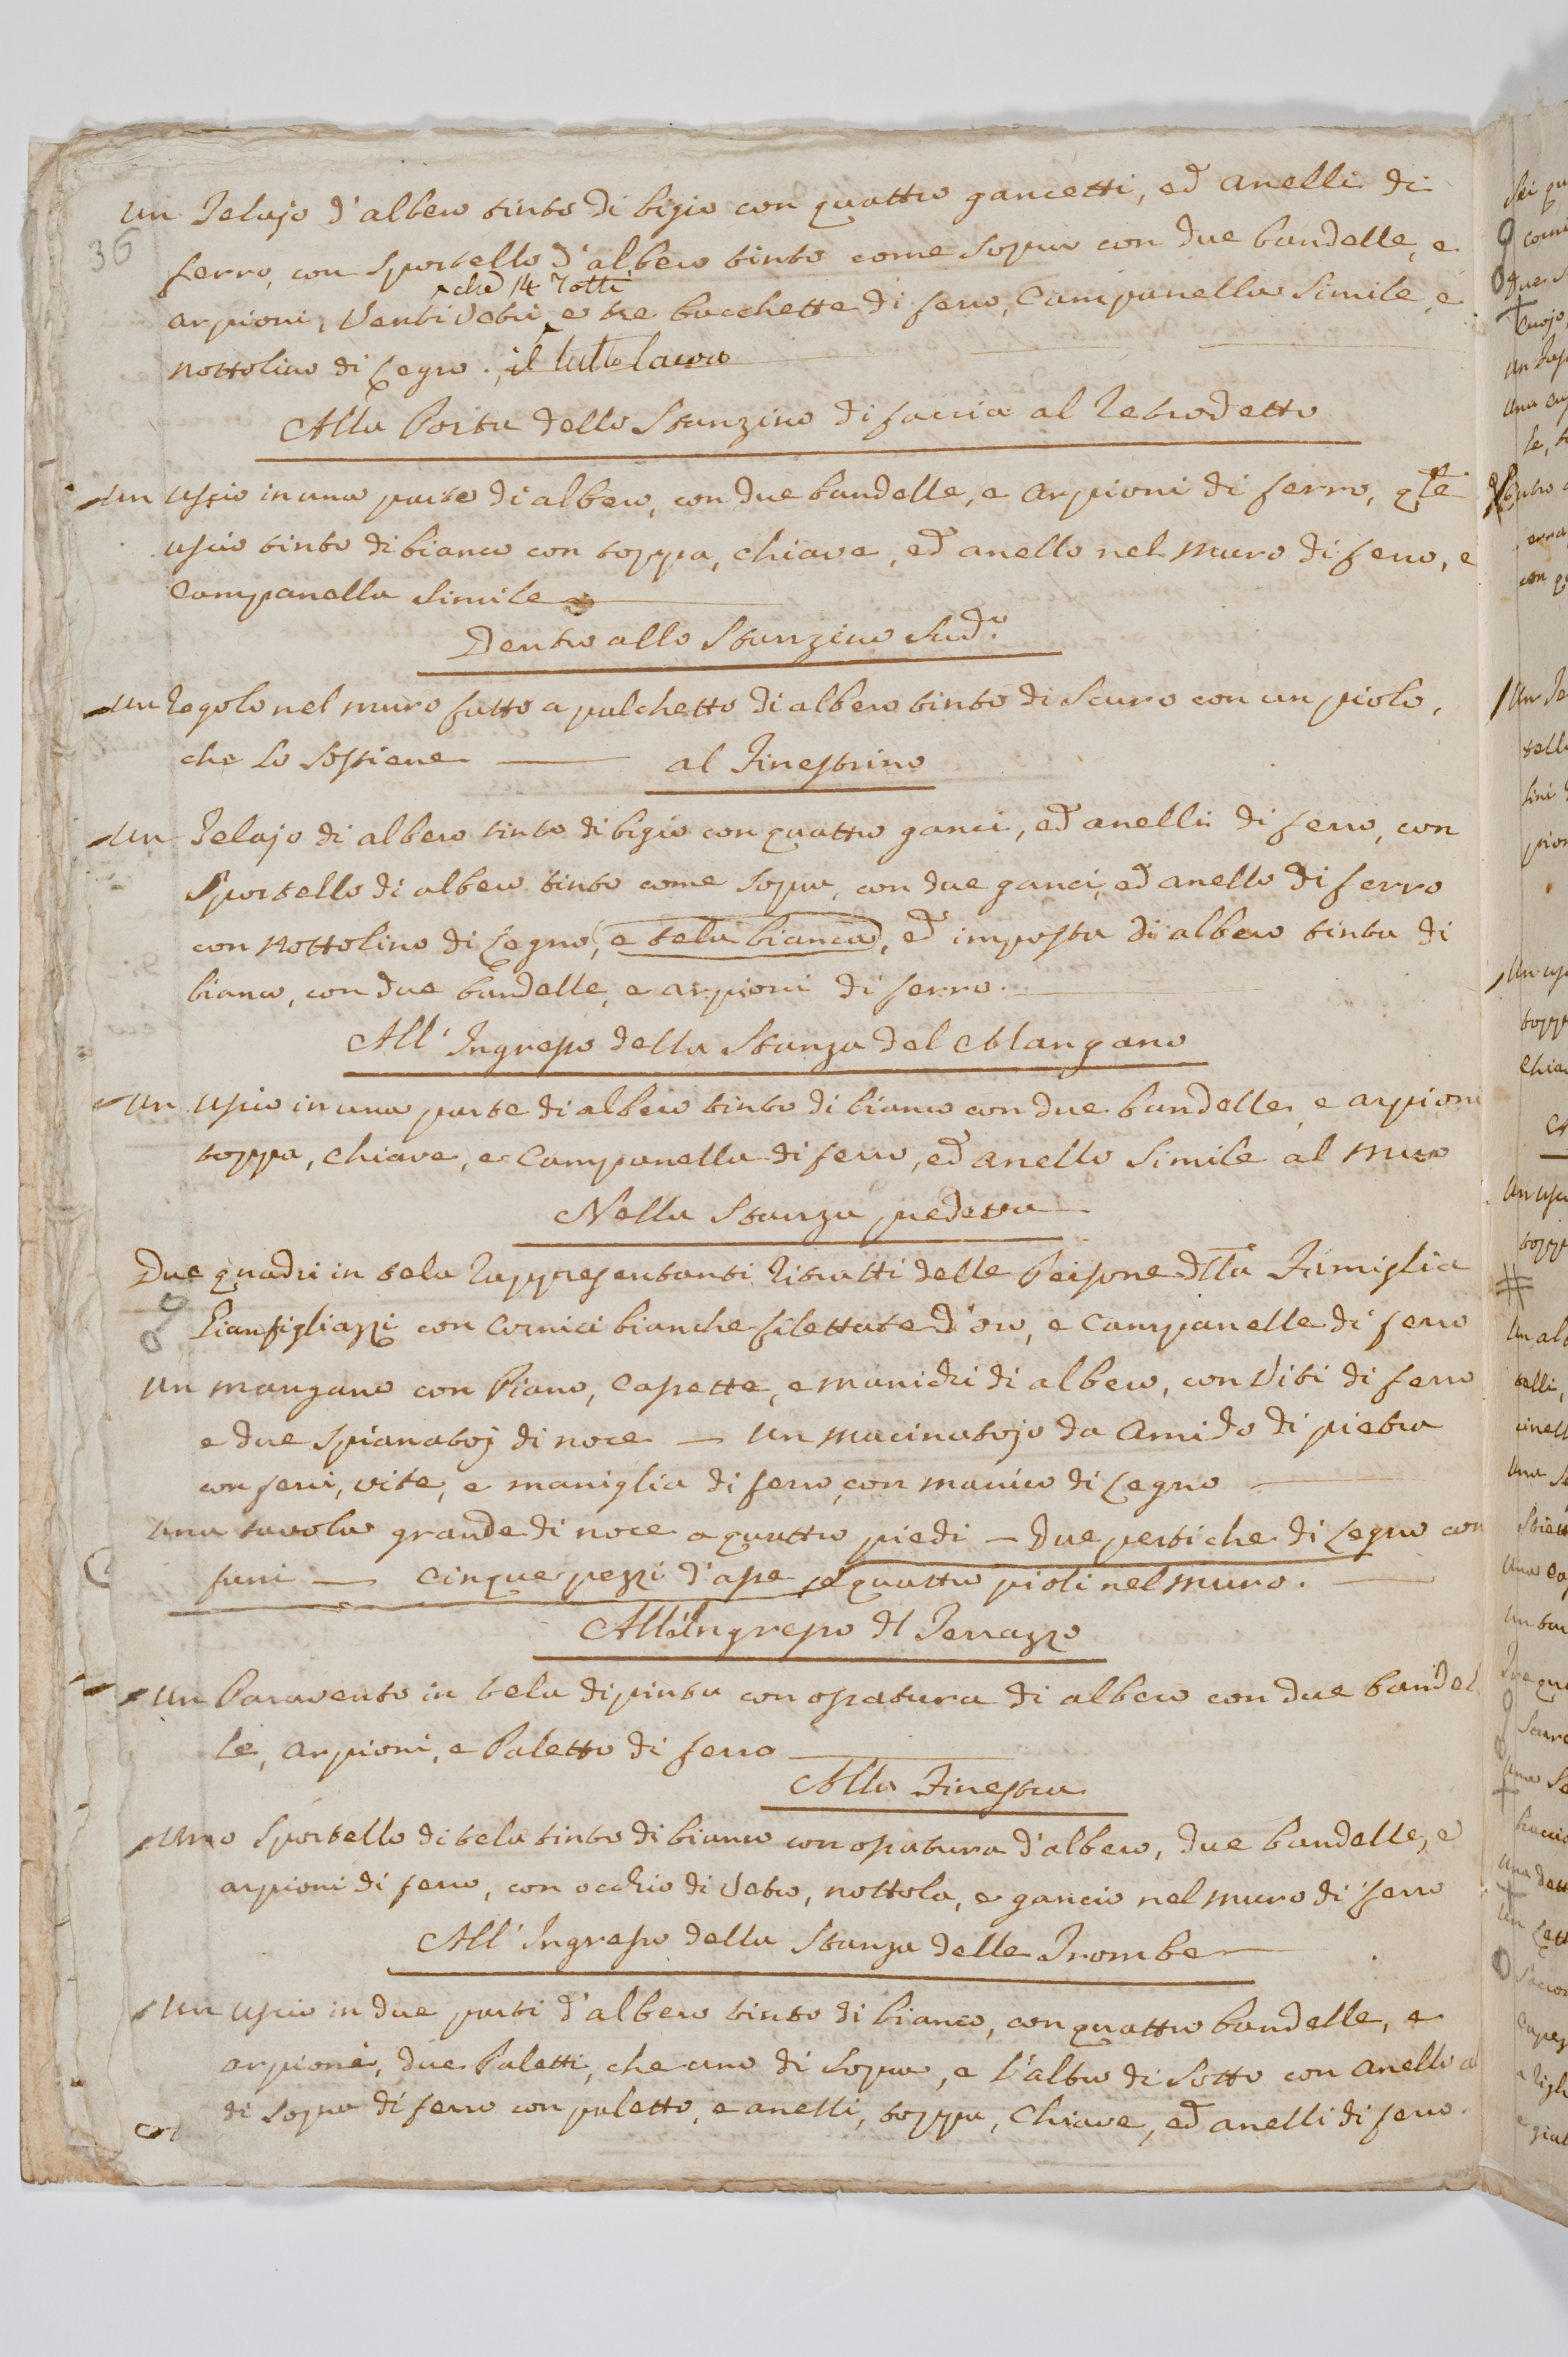 Un Telajo d'albero tinto di bigio con quattro gancetti, ed anelli di
36
ferro, con sportello d'albero tinto come sopra con due bandelle, e
che 14 rotti
arpioni, Venti Vetri e tre bacchette di ferro, Campanella simile, e
nottolino di Legno. il tutto lacero
Alla Porta dello Stanzino di faccia al Retrodetto
Un Uscio in una parte di albero, con due bandelle, e arpioni di ferro, qle
uscio tinto di bianco con toppa, chiave, ed anello nel muro di ferro, e
Campanella simile
Dentro allo Stanzino Sudo.
Un Regolo nel muro fatto a palchetto di albero tinto di scuro con un piolo,
che Lo sostiene — al Finestrino
Un Telajo di albero tinto di bigio con quattro ganci, ed anelli di ferro, con
Sportello di albero tinto come sopra, con due ganci, ed anello di ferro
con nottolino di Legno, e tela bianca, ed imposta di albero tinta di
bianco, con due bandelle, e arpioni di ferro.
All'Ingresso della Stanza del Mangano
Un Uscio in una parte di albero tinto di bianco con due bandelle, e arpioni
toppa, chiave, e Campanella di ferro, ed anello simile al muro
Nella Stanza predetta
Due quadri in tela rappresentanti Ritratti delle Persone dlla Famiglia
Gianfigliazzi con Cornici bianche filettate d'oro, e Campanelle di ferro
Un mangano con Piano, Cassette, e manichi di albero, con Viti di ferro
e due spianatoj di noce — Un macinatojo da Amido di pietra
con ferri, vite, e maniglia di ferro, con manico di Legno
Una tavola grande di noce a quattro piedi — Due pertiche di Legno con
funi — Cinque pezzi d'asse, e quattro pioli nel muro.
All'Ingresso dl Terrazzo
Un Paravento in tela dipinta con ossatura di albero con due bandel
le, arpioni, e Paletto di ferro
Alla Finestra
Uno Sportello di tela tinto di bianco con ossatura d'albero, due bandelle, e
arpioni di ferro, con occhio di Vetro, nottola, e gancio nel muro di ferro
All'Ingresso della Stanza delle Trombe
Un Uscio in due parti d'albero tinto di bianco, con quattro bandelle, e
arpioni, due Paletti, che uno di sopra, e l'altro di sotto con anello al
di sopra di ferro con paletto, e anelli, toppa, Chiave, ed anelli di ferro.